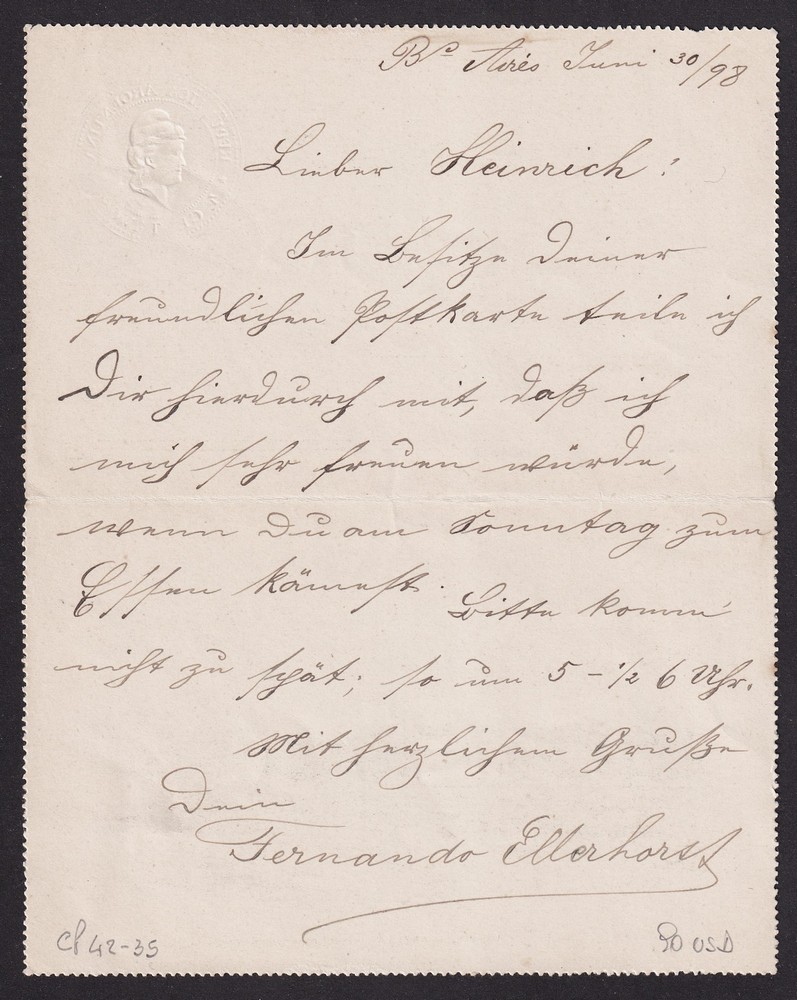 Bs Aires Juni 30/98
Lieber Heinrich!
Im Besitze Deiner
freundlichen Postkarte teile ich
Dir hierdurch mit, daß ich
mich sehr freuen würde,
wenn Du am Sonntag zum
Essen kämest. Bitte komm
nicht zu spät; so um 5 - 1/2 6 Uhr.
Mit herzlichem Gruße
Dein
Fernando Ellerhorst
CP 42-35
90 USD